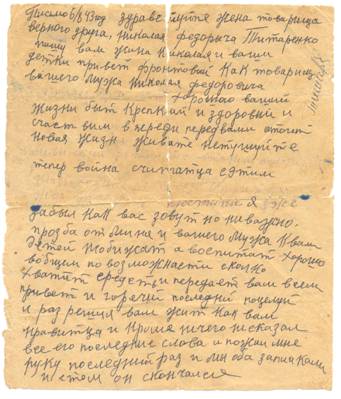 Письмо 6/8 43 год здравствуйте жена товарища
верного друга, Николая Федоровича Титаренко
пишу вам жена Николая и вашим
детки привет фронтовой как товарищ
вашего мужа Николая Федоровича
хорошо вашей
жизни быт крепкай и здоровый и
счастьвим впереди перед вами стоит
новая жизн живате нетущуйте
тепер война считатца с этим
Простите я уже
забыл как вас зовут но неважно.
прозба от Миня и вашего мужа к вам
детей необижат а воспитат хорошо
вобщим по возможности сколко
хватит средств и передает вам всем
привет и горячий последний поцелуй
и раз решил вам жит как вам
нравитца и кроме ничего несказал
все его последние слова и пожал мне
руку последний раз и мы оба заплакали
и етом он скончался